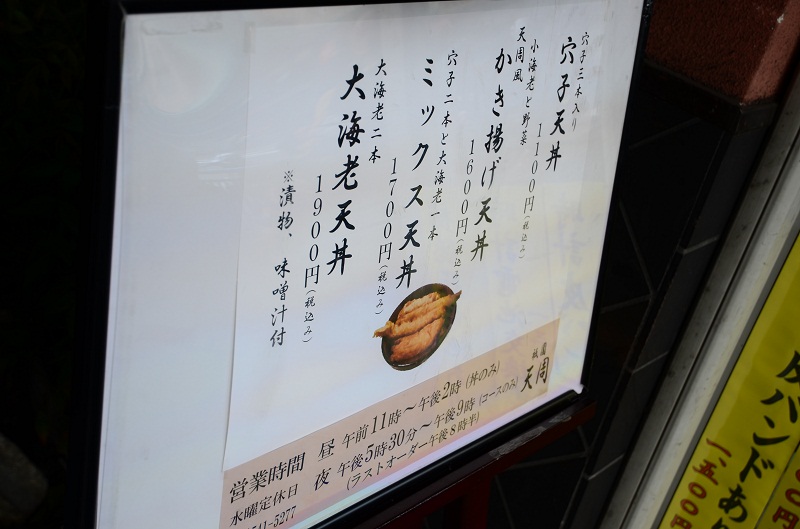 穴子三本入り
穴子天丼
1100円(税込み)
小海老と野菜
天周風
かき揚げ天丼
1600円(税込み)
穴子二本と大海老一本
ミックス天丼
1700円(税込み)
大海老二本
大海老天丼
1900円(税込み)
※漬物、味噌汁付
祇園
天周
営業時間 昼 午前11時〜午後2時(丼のみ)
夜 午後5時30分〜午後9時(コースのみ)
(ラストオーダー午後8時半)
水曜定休日
541-5277
バンドあ
一、五〇〇